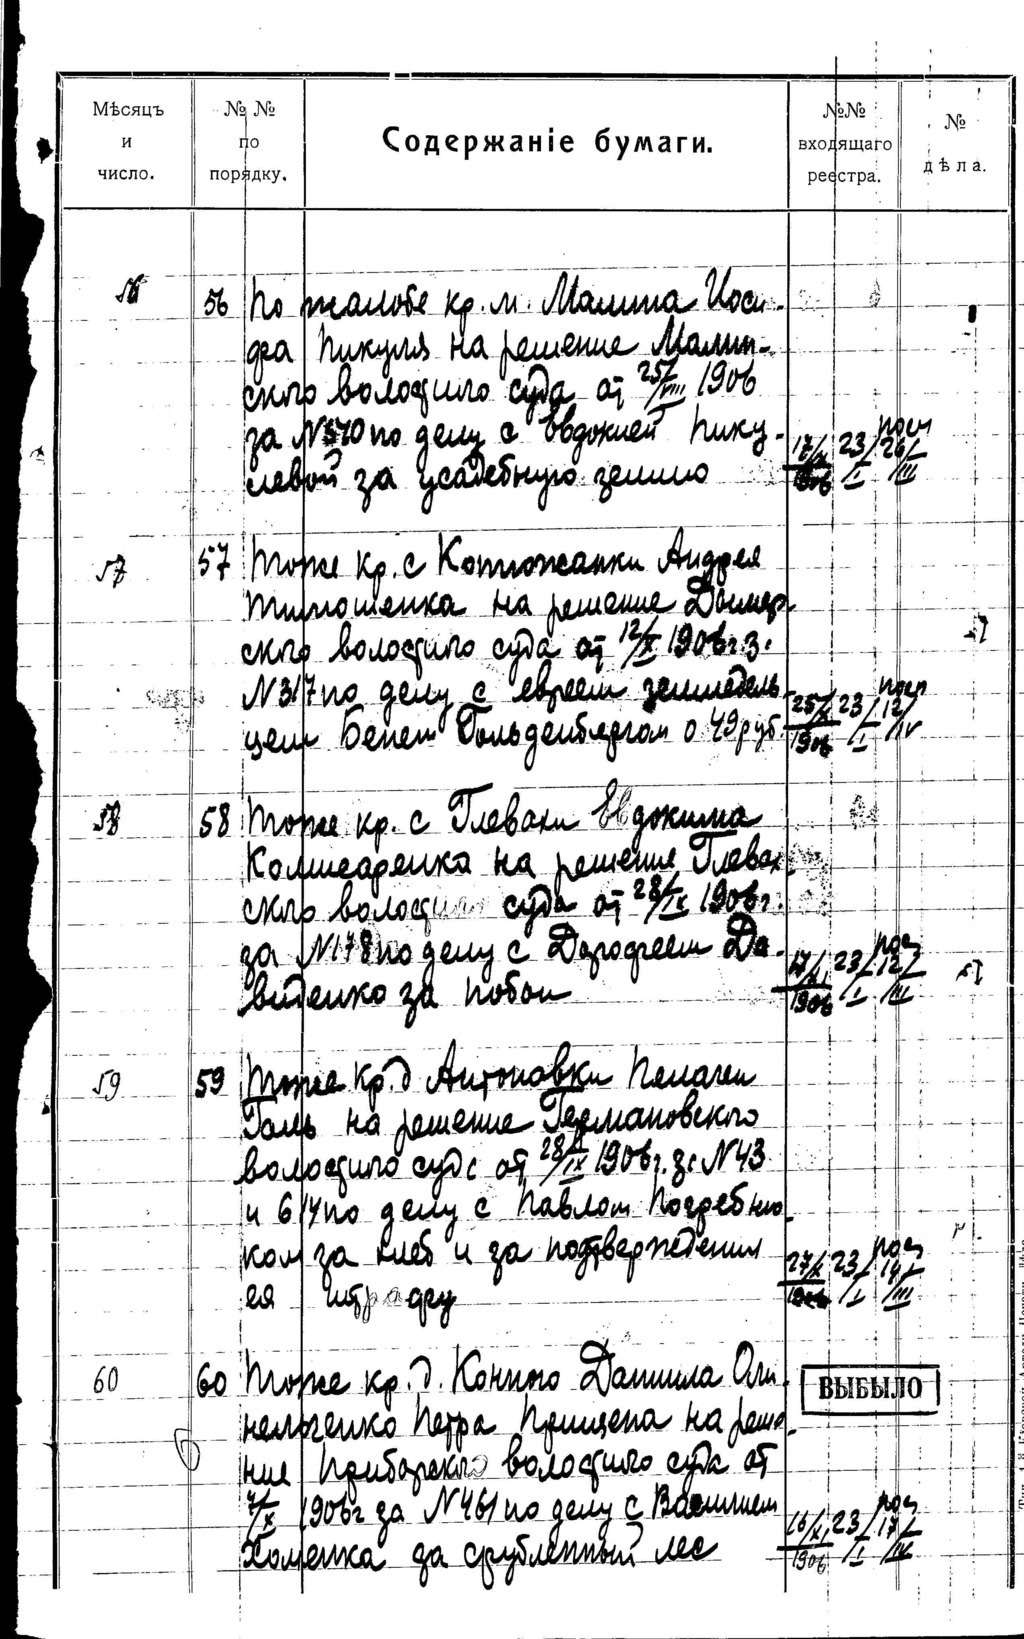 Мѣсяцъ и число.
№ № по порядку.
Содержаніе бумаги.
№№ входящаго реестра.
№ дѣла.
56 56 По жалобе кр. м. Малина Иоси-
фа Пикуля на решение Малин-
ского волостного суда от 25/VIII 1906
за N570 по делу с Евдокией Пику-
левой за усадебную землю 17/X 1906 23/I 26/III
57 57 Тоже кр. с Котложанки Андрея
Тимошенка на решение Дымер-
ского волостного суда от 12/X 1906 г. з.
N317 по делу с евреем земледель
цем Бенем Гольденбергом о 49 руб. 25/X 1906 23/I 12/IV
58 58 Тоже кр. с Глевахи Евдокима
Комисаренка на решение Глевах-
ского волостного суда от 28/IX 1906 г.
за N178 по делу с Дорофеем Да-
виденко за побои 17/XI 1906 23/I 12/III
59 59 Тоже кр. д Антоновки Пелагеи
Голь на решение Германовского
волостного суда от 28/IX 1906 г. за N43
и 614 по делу с Павлом Погребня-
ком за хлеб и за подтверждения
ея штрафу 27/X 1906 23/I 14/III
60 60 Тоже кр. д. Конного Даниила Оли-
Петра Прищепа на реше-
ние Приборского волостного суда от
7/X 1906 г за N461 по делу с Василием
Хоменка за срубленный лес 16/XI 1906 23/I 17/IV
ВЫБЫЛО